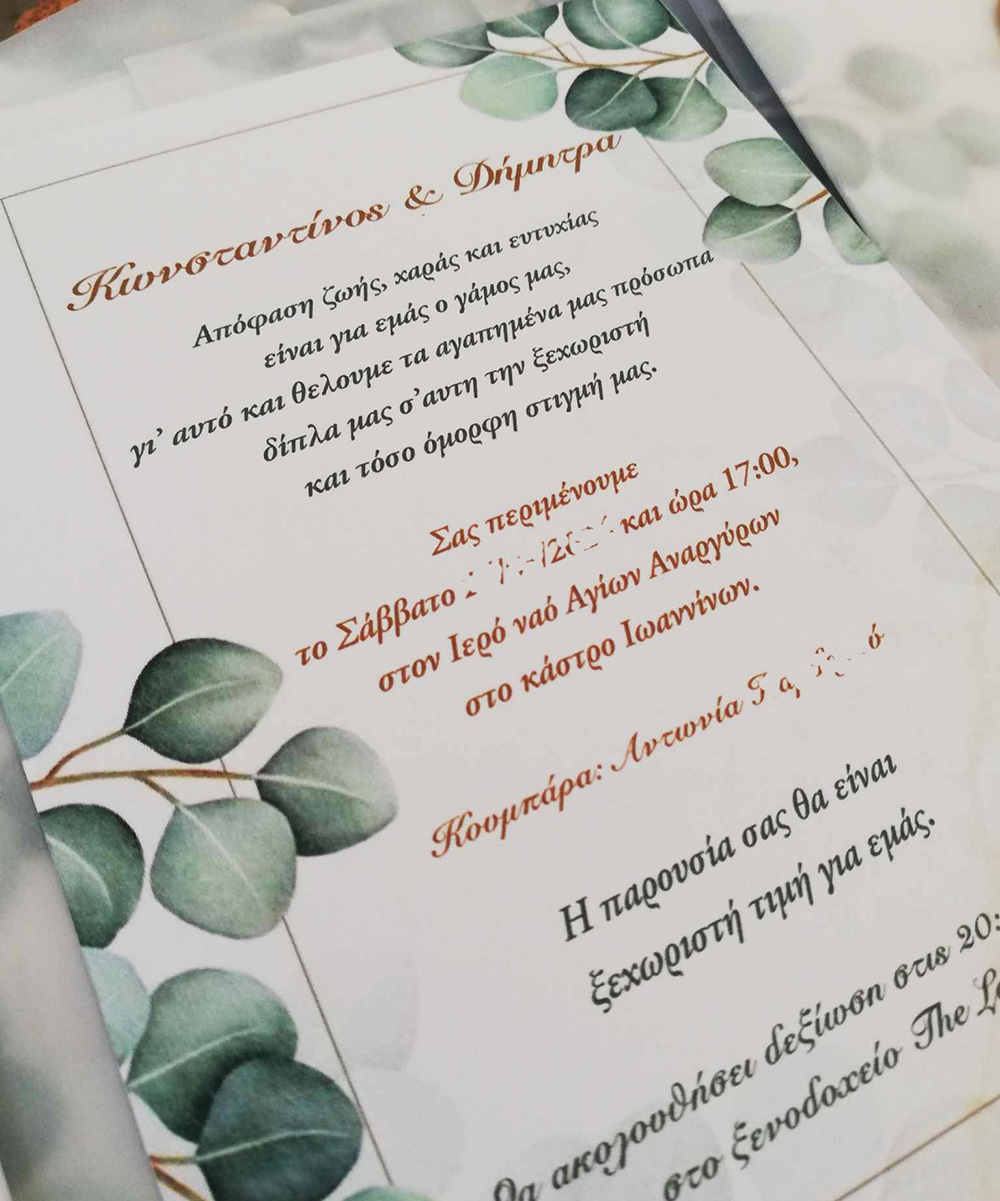 Κωνσταντίνος & Δήμητρα
Απόφαση ζωής, χαράς και ευτυχίας
είναι για εμάς ο γάμος μας,
γι’ αυτό και θελουμε τα αγαπημένα μας πρόσωπα
δίπλα μας σ’αυτη την ξεχωριστή
και τόσο όμορφη στιγμή μας.
Σας περιμένουμε
το Σάββατο και ώρα 17:00,
στον Ιερό ναό Αγίων Αναργύρων
στο κάστρο Ιωαννίνων.
Κουμπάρα: Αντωνία
Η παρουσία σας θα είναι
ξεχωριστή τιμή για εμάς.
Θα ακολουθήσει δεξίωση στις 20:
στο ξενοδοχείο The